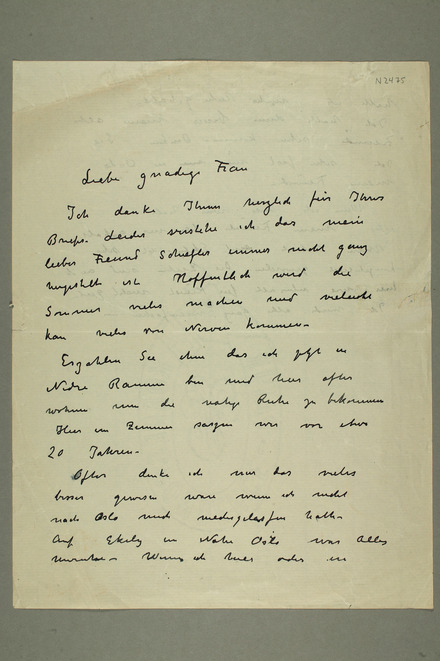 N 2475
Liebe gnadige Frau
Ich danke Ihnen herzlich für Ihres
Briefs. Leider verstehe ich das mein
lieber Freund Schiefler immer nicht ganz
hergestellt ist. Hoffentlich wird die
Sommer vieles machen und vieleicht
kan vieles von Nerven kommen.
Erzahlen Sie ihm das ich jetzt in
Nedre Ramme bin und hier ofter
wohne um die notige Ruhe zu bekommen
Hier im Zimmer sasen wir vor etwa
20 Jahren.
Ofter denke ich nur das vieles
besser gewesen ware wenn ich nicht
nach Oslo mich niedergelassen hatte.
Auf Ekely in Nahe Oslo war Alles
hier oder in